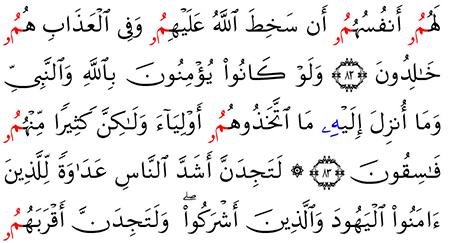 لَهُمُۥٓ أَنفُسُهُمُۥٓ أَن سَخِطَ ٱللَّهُ عَلَيْهِمُۥ وَفِى ٱلْعَذَابِ هُمُۥ
خَٰلِدُونَ ۝٨٢ وَلَوْ كَانُوا۟ يُؤْمِنُونَ بِٱللَّهِ وَٱلنَّبِىِّ
وَمَآ أُنزِلَ إِلَيْهِۦ مَا ٱتَّخَذُوهُمُۥٓ أَوْلِيَآءَ وَلَٰكِنَّ كَثِيرًا مِّنْهُمُۥ
فَٰسِقُونَ ۝٨٣ ۞ لَتَجِدَنَّ أَشَدَّ ٱلنَّاسِ عَدَٰوَةً لِّلَّذِينَ
ءَامَنُوا۟ ٱلْيَهُودَ وَٱلَّذِينَ أَشْرَكُوا۟ ۖ وَلَتَجِدَنَّ أَقْرَبَهُمُۥ